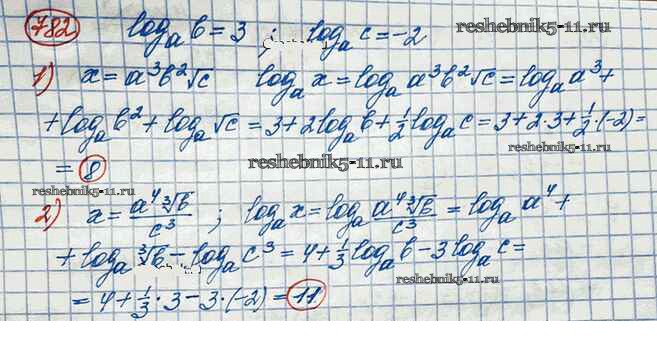 782 log_a b = 3 ; log_a c = -2 reshebnik5-11.ru
1) x = a³b²√c log_a x = log_a a³b²√c = log_a a³ +
+ log_a b² + log_a √c = 3 + 2log_a b + ½ log_a c = 3 + 2·3 + ½·(-2) =
= 8 reshebnik5-11.ru
reshebnik5-11.ru reshebnik5-11.ru
2) x = a⁴∛b / c³ ; log_a x = log_a a⁴∛b / c³ = log_a a⁴ +
+ log_a ∛b - log_a c³ = 4 + ⅓ log_a b - 3 log_a c =
= 4 + ⅓·3 - 3·(-2) = 11 reshebnik5-11.ru